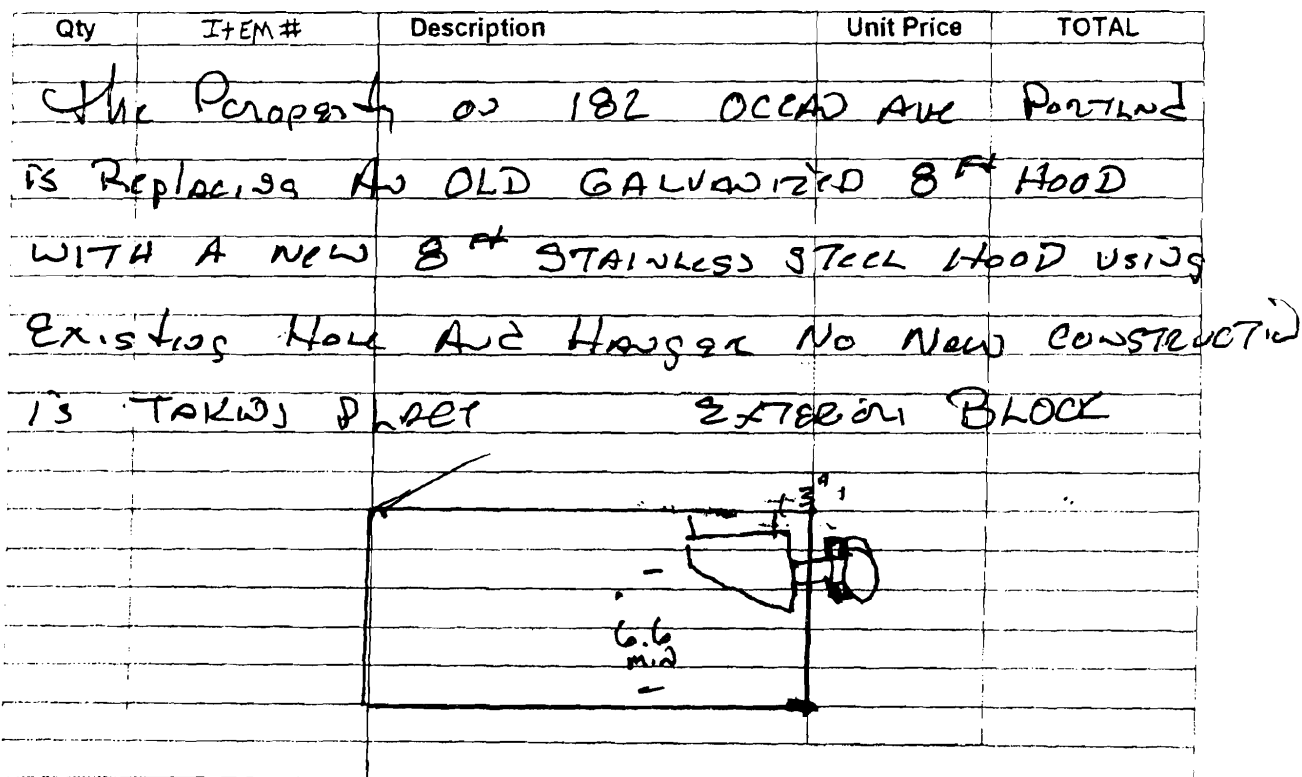 Qty ItEM # Description Unit Price TOTAL
The Property on 182 OCEAN AVE Portlnd
is Replacing An OLD GALVANIZED 8 Ft HOOD
WITH A New 8 Ft STAINLESS STEEL HOOD USING
Existing Hole And Hanger No New CONSTRUCTION
is TAKING PLACE EXTERIOR BLOCK
6.6
min